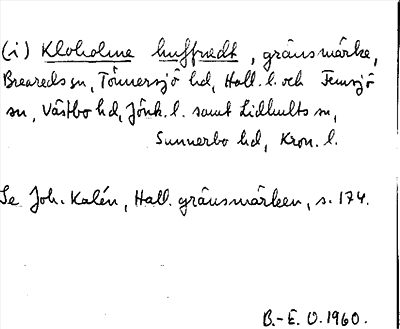 (i) Kloholme huffredt, gränsmärke,
Breareds sn, Tönnersjö hd, Hall. l. och Femsjö
sn, Västbo hd, Jönk. l. samt Lidhults sn,
Sunnerbo hd, Kron. l.
Se Joh. Kalén, Hall. gränsmärken, s. 174.
B.-E. O. 1960.